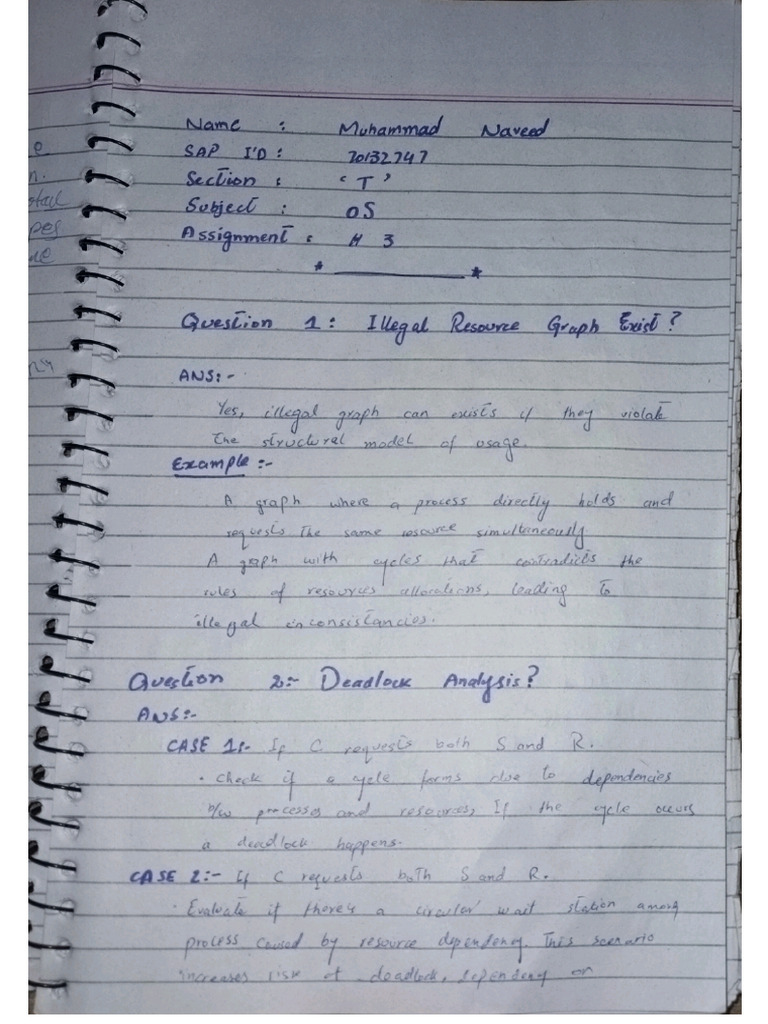 Name : Muhammad Naveed
SAP I'D : 70132747
Section : 'T'
Subject : OS
Assignment : # 3
* ———— *
Question 1 : Illegal Resource Graph Exist ?
ANS:-
Yes, illegal graph can exists if they violate
the structural model of usage.
Example :-
A graph where a process directly holds and
requests the same resource simultaneously
A graph with cycles that contradicts the
rules of resources allocations, leading to
illegal inconsistancies.
Question 2:- Deadlock Analysis ?
ANS:-
CASE 1:- If C requests both S and R.
• Check if a cycle forms due to dependencies
b/w processes and resources, If the cycle occurs
a deadlock happens.
CASE 2:- If C requests both S and R.
• Evaluate if there's a circular wait station among
process caused by resource dependency. This scenario
increases risk of deadlock, dependency on